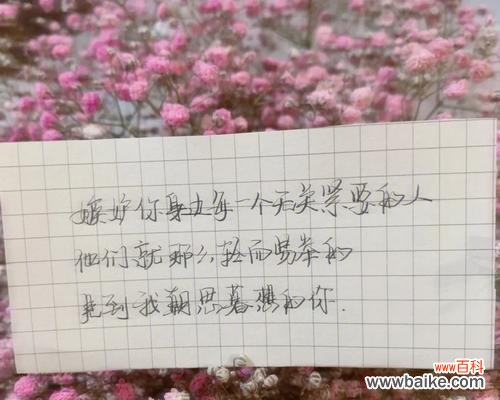 嫉妒你身边每一个无关紧要的人
他们就那么轻而易举的
见到我朝思暮想的你.
www百科
www.baike.com